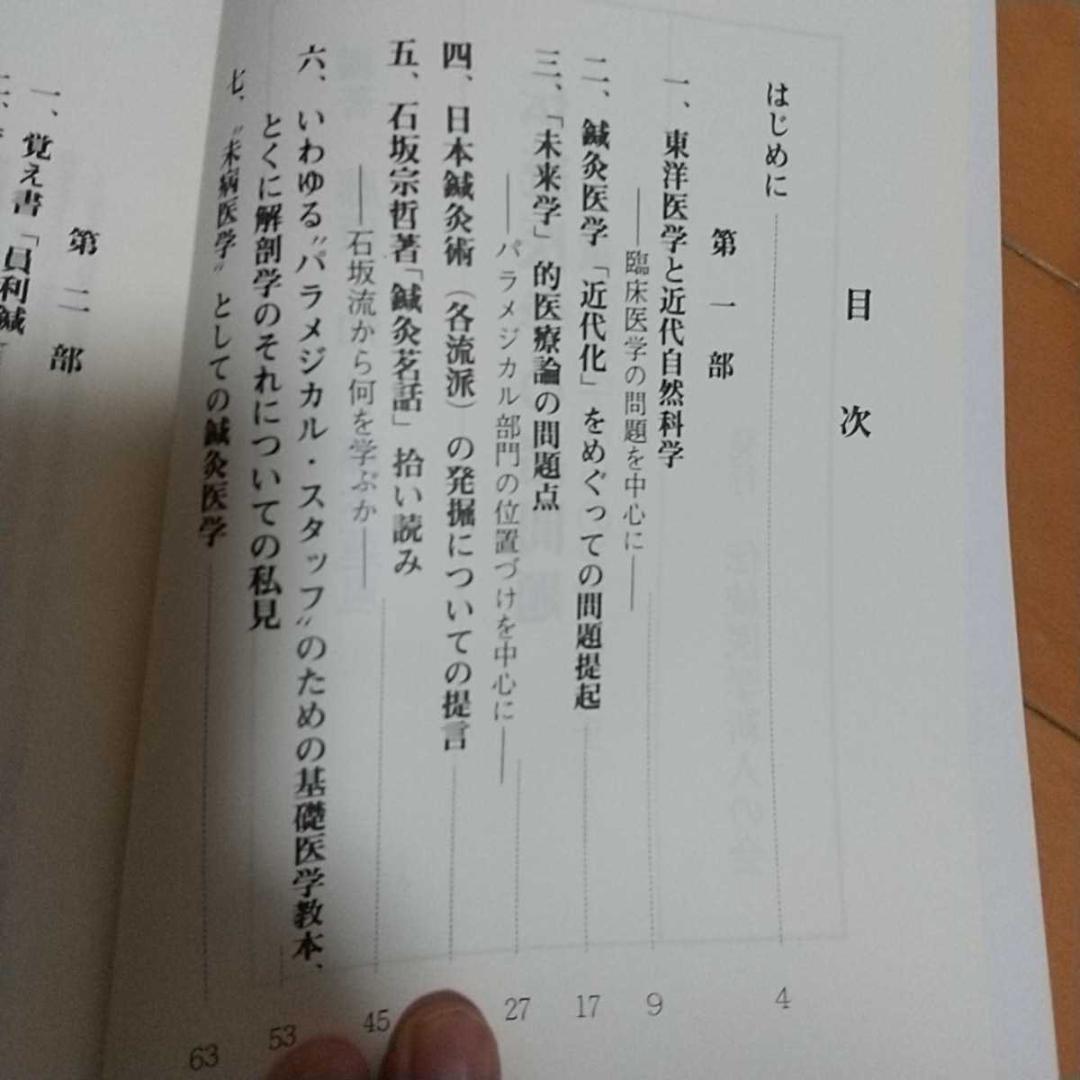 目次
はじめに 4
第一部
一、東洋医学と近代自然科学
──臨床医学の問題を中心に── 9
二、鍼灸医学「近代化」をめぐっての問題提起 17
三、「未来学」的医療論の問題点
──パラメジカル部門の位置づけを中心に── 27
四、日本鍼灸術（各流派）の発掘についての提言
五、石坂宗哲著「鍼灸茗話」拾い読み
──石坂流から何を学ぶか── 45
六、いわゆる〝パラメジカル・スタッフ〟のための基礎医学教本、
とくに解剖学のそれについての私見 53
七、〝未病医学〟としての鍼灸医学 63
第二部
一、覚え書「員利鍼
二、